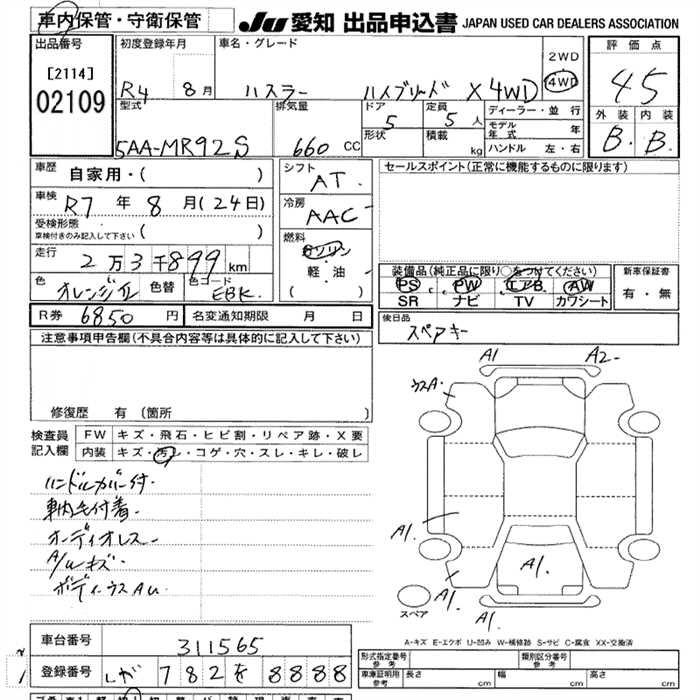 車内保管・守衛保管
JU 愛知 出品申込書 JAPAN USED CAR DEALERS ASSOCIATION
出品番号
[2114]
02109
初度登録年月
R4 8月
車名・グレード
ハスラー ハイブリッド X 4WD
2WD
4WD
評価点
4.5
型式
5AA-MR92S
排気量
660 CC
ドア
5
形状
定員
5人
積載
kg
ディーラー・並行
モデル年式 年
ハンドル 左・右
外装 内装
B. B.
車歴
自家用・( )
車検
R7年 8月(24日)
受検形態
車検付きのみ記入して下さい ( )
走行
2万3千899km
色
オレンジⅡ
色替
色コード
EBK.
シフト
AT.
冷房
AAC
燃料
ガソリン
軽・油
( )
セールスポイント(正常に機能するものに限ります)
装備品(純正品に限り○をつけてください)
PS PW エアB. AW
SR ナビ TV カワシート
新車保証書
有・無
R券 6850円
名変通知期限 月 日
後日品
スペアキー
注意事項申告欄(不具合内容等は具体的に記入して下さい)
修復歴 有(箇所 )
検査員記入欄
FW キズ・飛石・ヒビ割・リペア跡・X要
内装 キズ・汚レ・コゲ・穴・スレ・キレ・破レ
ハンドルカバー付
車内毛付着
オーディオレス
A/Wキズ
ボディーウスAU
A1 A2
ウスA.
A1.
A1.
A1.
A1.
A1.
スペア
A-キズ E-エクボ U-凹み W-補修跡 S-サビ C-腐食 XX-交換済
車台番号
311565
登録番号
しが 782 を 8888
形式指定番号
参考
類別区分番号
参考
車庫証明用
参考
長さ cm 幅 cm 高さ cm